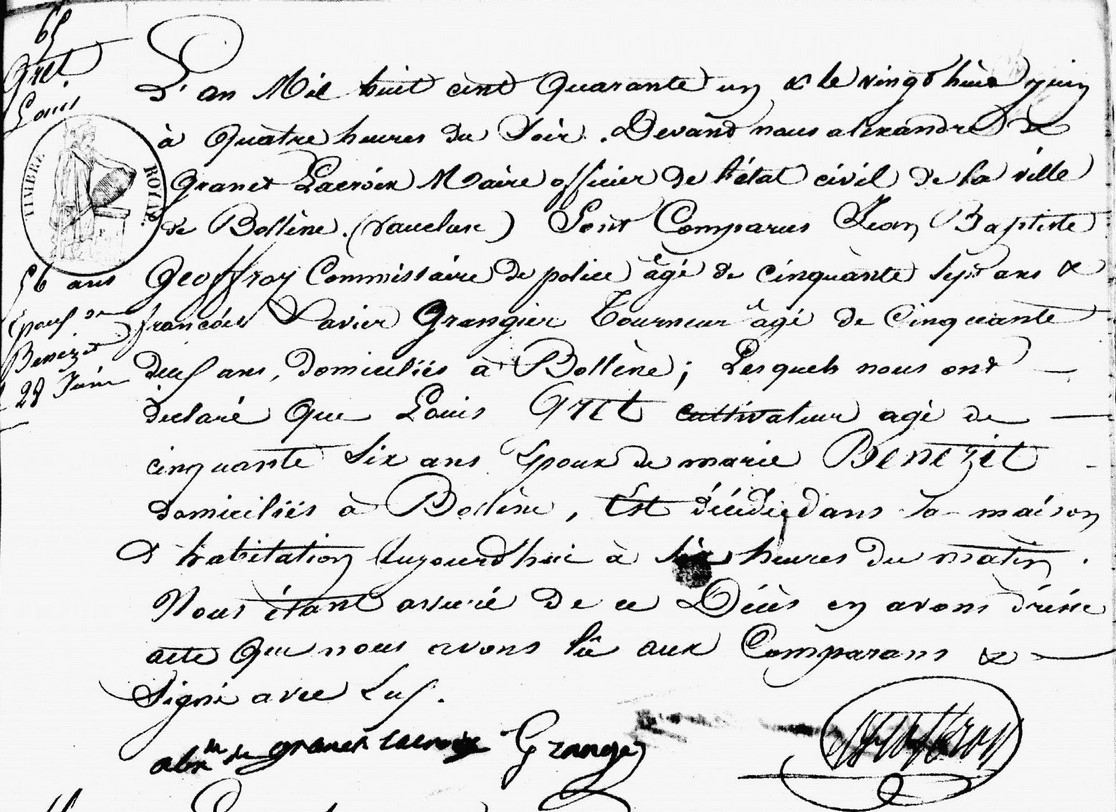 65
Gret
Louis
TIMBRE ROYAL
56 ans
Epoux de
Benezet
28 Juin
L'an Mil huit cent Quarante un & le vingt huit juin
à Quatre heures du Soir. Devant nous alexandre de
Granet Lacroix Maire officier de l'état civil de la ville
de Bollène. (Vaucluse) Sont Comparus Jean Baptiste
Geoffroy Commissaire de police âgé de cinquante sept ans &
francois Xavier Grangier Tourneur âgé de Cinquante
deux ans, domiciliés à Bollène; Lesquels nous ont
déclaré Que Louis Gret cultivateur agé de
cinquante Six ans Epoux de marie Benezet
domiciliés à Bollène, Est décédé dans sa maison
d'habitation aujourd'hui à six heures du matin.
Nous étant assuré de ce Décès en avons dréssé
acte Que nous avons lû aux Comparans &
Signé avec Eux.
alex de granet lacroix Grangier